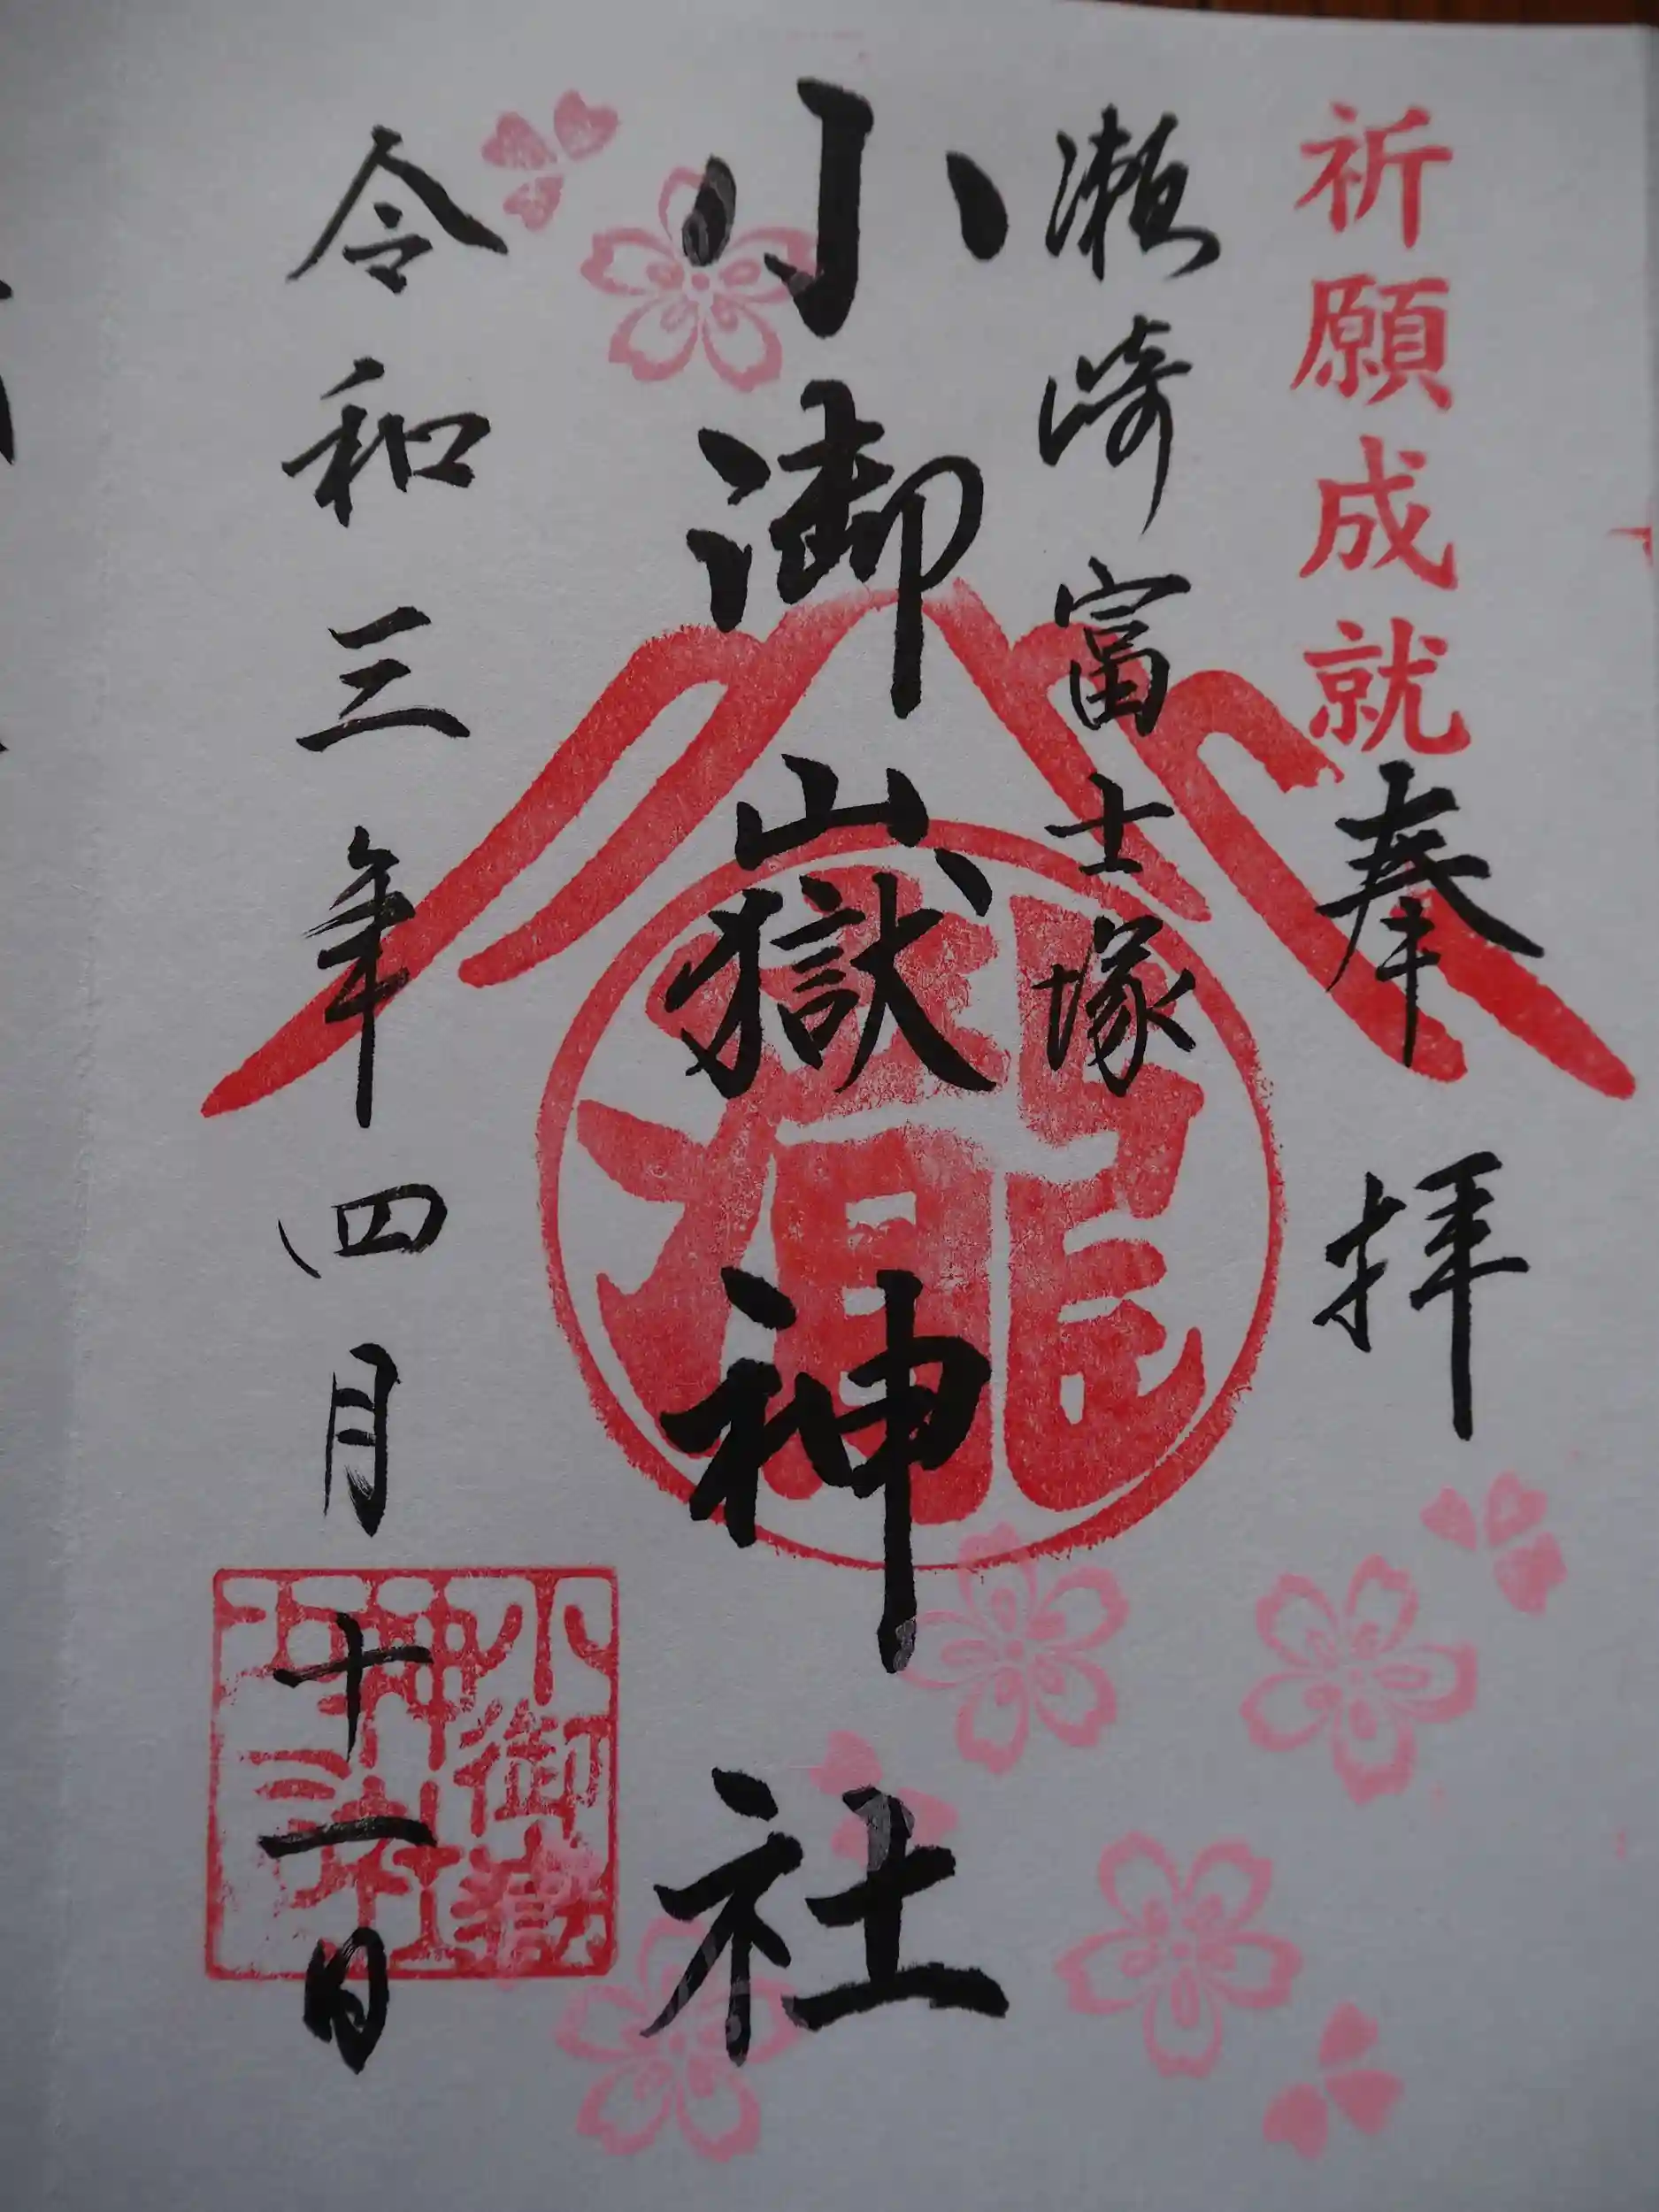 祈願成就
奉拝
瀬崎富士塚
小御嶽神社
令和三年四月十一日
小御嶽
神社